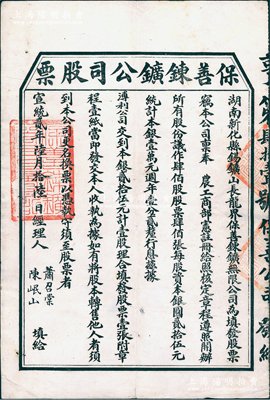 保善錬鑛公司股票
湖南新化縣錫鑛山長龍界保善錬鑛無限公司為填發股票
竊本公司稟奉 農工商部憲註冊給照核定章程遵照開辦
所有股份議作肆伯股股票肆伯張每股資本銀圓貳拾伍元
統計本銀壹萬元週年壹分貳釐行息據
溥利公司交到本銀貳拾伍元計壹股理合填發股票壹張附章
程壹紙當即發交本人收執為據如有將股本轉售他人者須
到本公司更名換票以憑數字須至股票者
宣統 年 月拾 日經理人 蕭召棠 陳岷山 填給